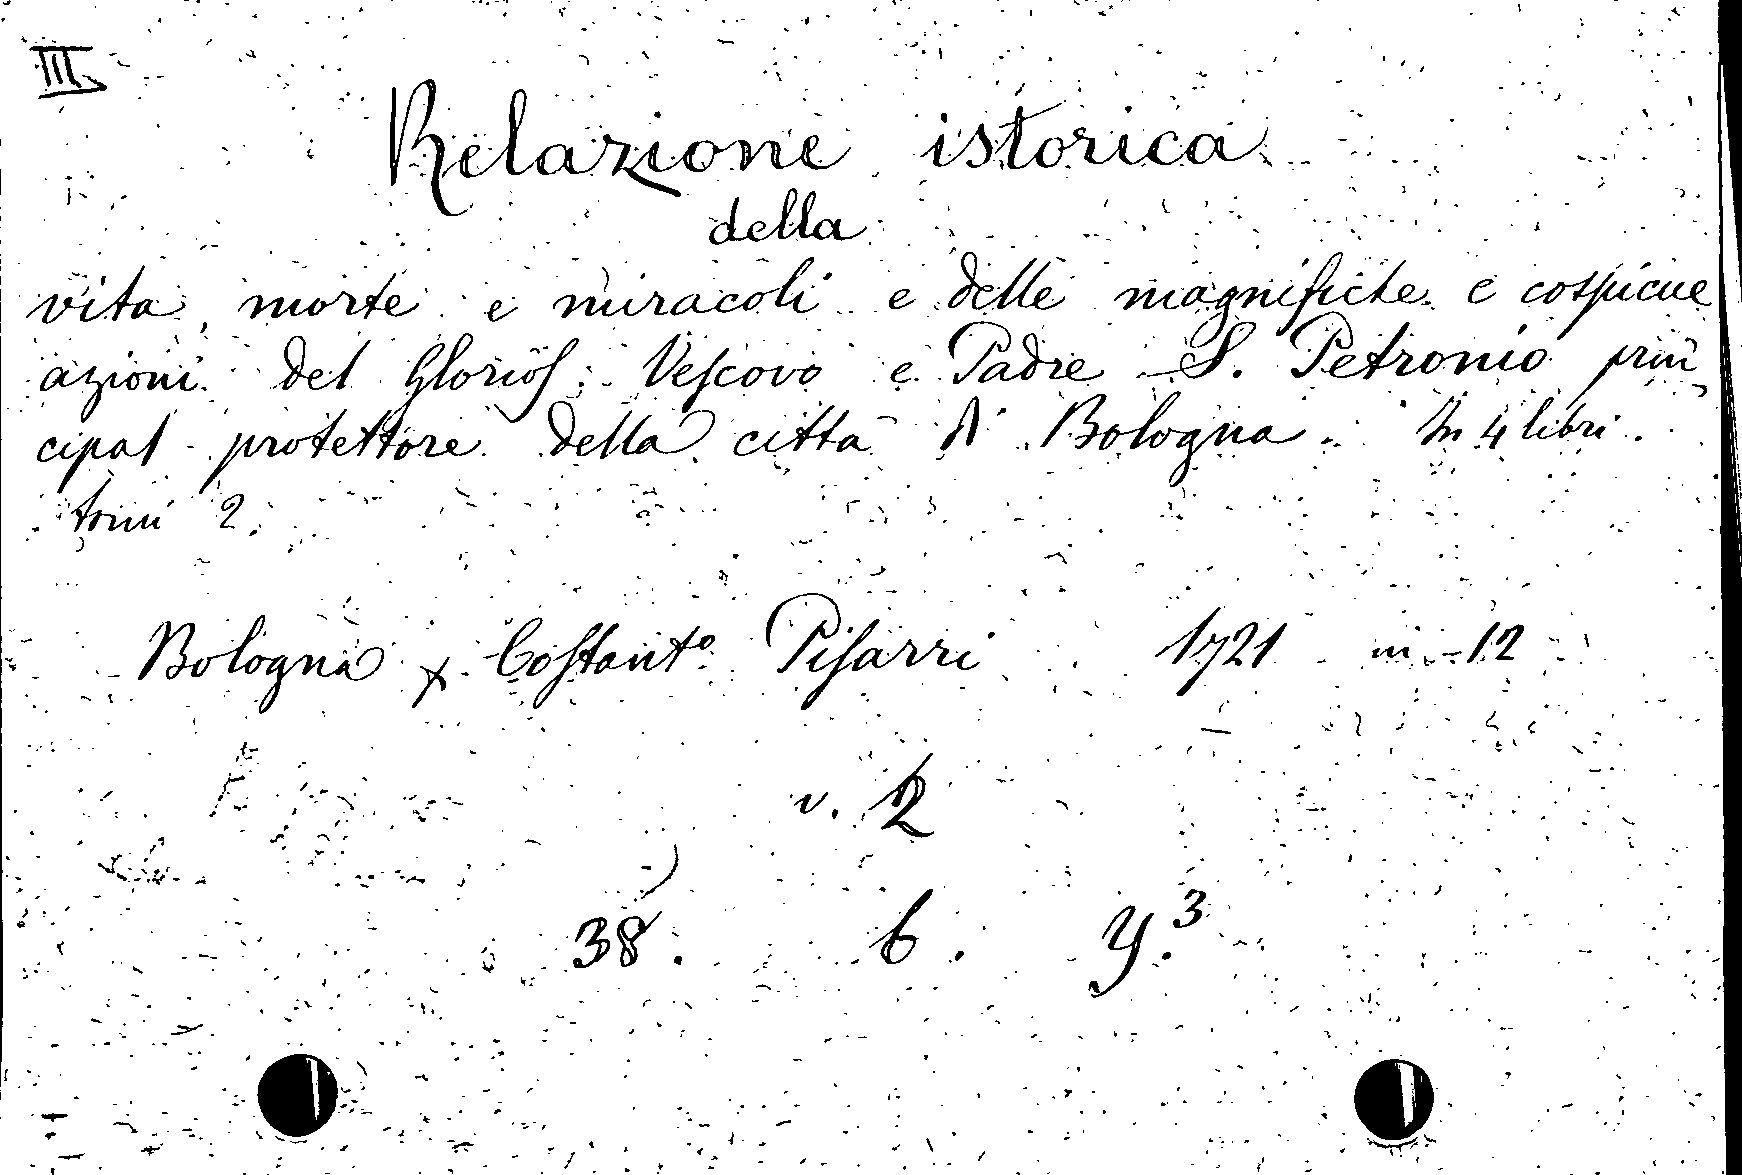 III
Relazione istorica
della
vita, morte e miracoli e delle magnifiche e cospicue
azioni del Glorios. Vescovo e Padre S. Petronio prin
cipal protettore della città di Bologna. In 4 libri.
tomi 2.
Bologna x Costant.º Pisarri 1721 in-12
v. 2
38. b. Y.³